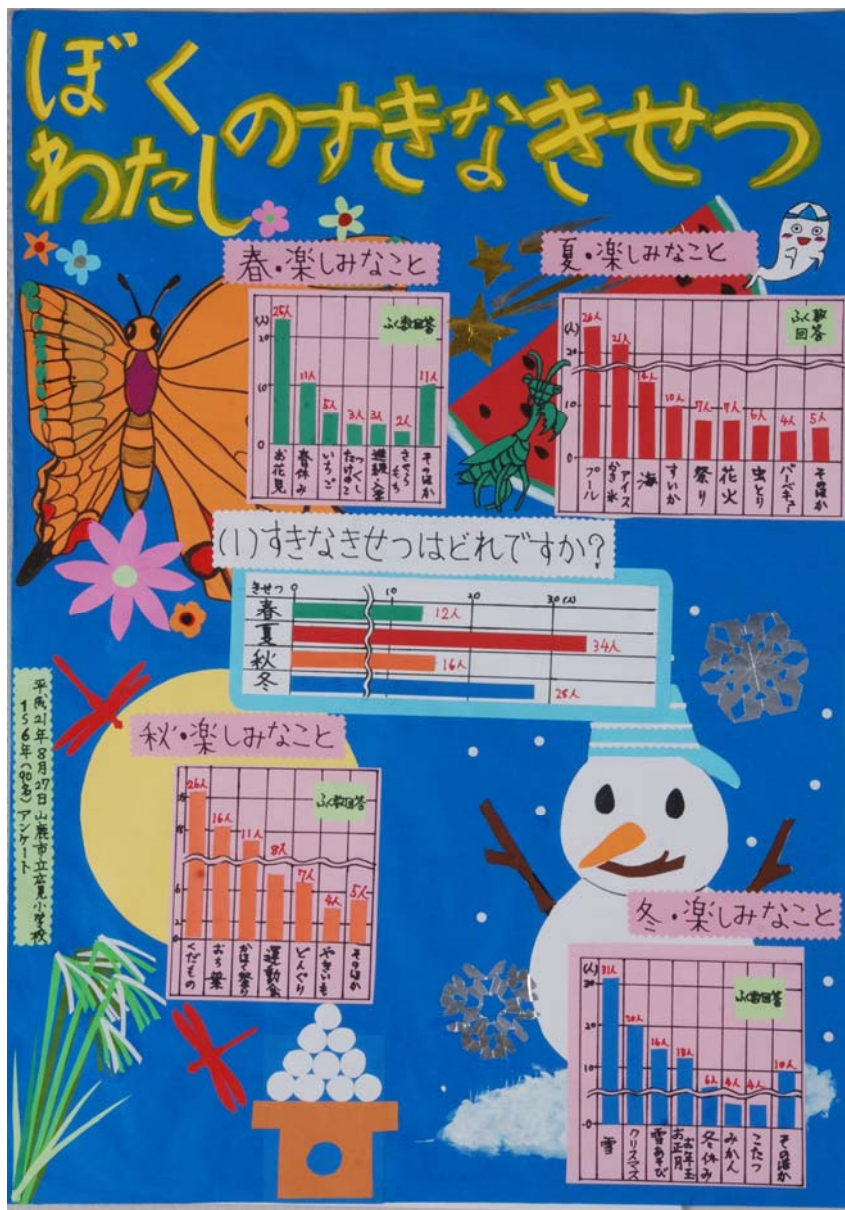 ぼく
わたし
のすきなきせつ
春・楽しみなこと
(人)
ふく数回答
20
10
0
25人
11人
5人
3人
3人
2人
11人
お花見
春休み
いちご
つくし
たけのこ
さくらもち
そのほか
夏・楽しみなこと
(人)
ふく数
回答
20
10
0
26人
21人
14人
10人
7人
7人
6人
4人
5人
プール
アイス
かき氷
海
すいか
祭り
花火
虫とり
バーベキュー
そのほか
(1)すきなきせつはどれですか?
きせつ
0
10
20
30(人)
春
12人
夏
34人
秋
16人
冬
28人
平成21年8月27日
1〜6年(90名)アンケート
秋・楽しみなこと
ふく数回答
26人
16人
11人
8人
7人
4人
5人
くだもの
おち葉
運動会
どんぐり
やきいも
そのほか
冬・楽しみなこと
(人)
ふく数回答
30
20
10
0
31人
20人
16人
13人
6人
4人
4人
10人
雪
クリスマス
雪あそび
お年玉
お正月
冬休み
みかん
こたつ
そのほか